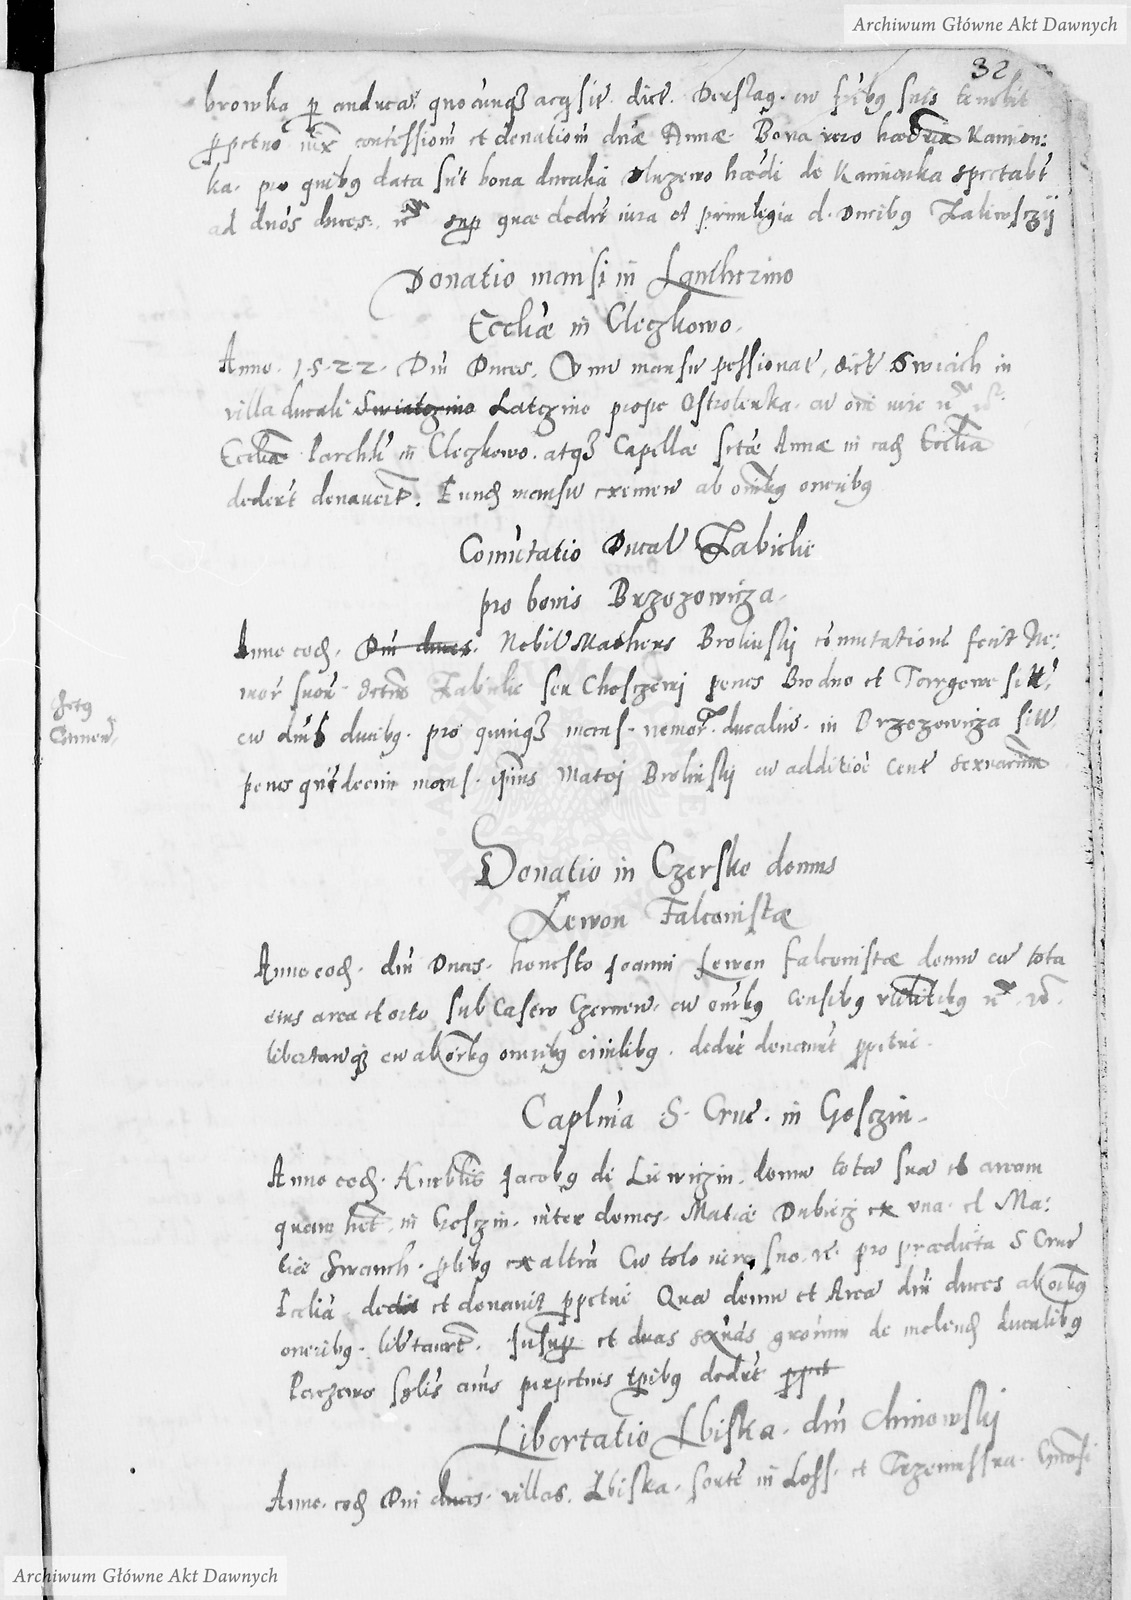 Archiwum Główne Akt Dawnych
32
browka p̱ anduca. quocunq; acq̃sit. dict. Derslag. cū fr̃ibꝯ suis tenebit
ꝑpetuo iux̃ confessionẽ et donationẽ dn̄æ Annæ. Bona vero hæd Kamion:
ka. pro quibꝯ data sūt bona ducalia Oluzewo hædi de Kamionka spectabūt
ad dnōs duces. sup quæ dedēt iura et priuilegia d. Ducibꝯ Zaliwsczÿ
Donatio mansi in Lanthczino
Eccliæ in Cleczkowo.
Anno. 1522. Dn̄i Duces, Vnū mansū possionat, dict Swiaich in
villa ducali Swiatczino Latczino prope Ostrolenka. cū om̄i iure
Eccliæ Parchli in Cleczkowo. atq; Capellæ sctæ Annæ in eadē Ecclia
dederūt donauerūt. Eundē mansū exemerū ab om̄ibꝯ oneribꝯ
Comūtatio Ducal Zabieliẽ
pro bonis Brzozowicza.
Anno eodē. Dn̄i duces. Nobil Matheus Brolinskj cōmutationē fecit Ne:
mor suor dictor Zabielie seu Chosczewj penes Brodno et Targowe sitt,
cū dn̄is ducibꝯ. pro quinq; mans. nemor. ducaliu. in Brzozowicza sitt
penes quīdecim mans. ipsius Matej Brolinskj cū additioē Cent sexnariū
Actꝯ
Camen.
Donatio in Czersko domus
Lewon Falconistæ
Anno eodē. dn̄i Duces. honesto Joanni Lewon falconistæ domū cū tota
eius area et orto sub Castro Czernen. cū om̄ibꝯ censibꝯ vtilitibꝯ
libertamq; cū ab om̄ibꝯ oneribꝯ ciuilibꝯ. dedēt donauēt ꝑpetue.
Caplnia S. Cruc. in Gosczin.
Anno eodē. Hnrblis Jacobꝯ de Liewiczin. domū totā suā et aream
quam het. in Gosczin. inter domos. Matiæ Dubiecz ex vna. et Ma:
tiæ Swanch. ꝓlibꝯ ex altra Cū toto iure suo. pro prædicta S Cruc
Ecclia dedit et donauit ꝑpetue Quā domū et Areā dn̄i duces ab om̄ibꝯ
oneribꝯ. libtauert. Insup et duas sexnas granorū de molend ducalibꝯ
Parzewo sglis anis perpetuis tp̄ibꝯ dedēt ꝑpet
Libertatio Lbiska. dn̄i Chinowskj
Anno. eodē Dn̄i duces. villas. Lbiska. sorte in Loss. et Trzemessna.
Archiwum Główne Akt Dawnych